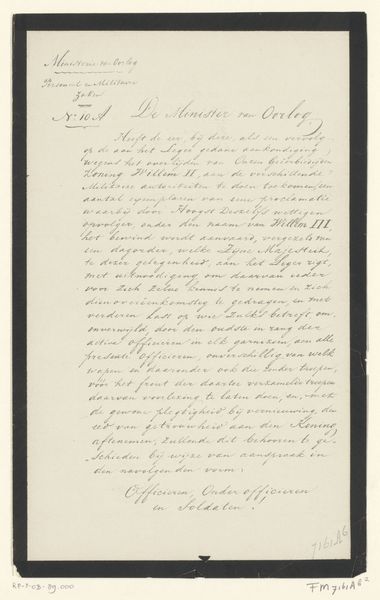 Ministerie van Oorlog
Personeel en Militaire
Zaken
No. 10 A
De Minister van Oorlog,
Heeft de eer, bij deze, als een vervolg
op de aan het Leger gedane aankondiging,
wegens het overlijden van Onzen geëerbiedigden
Koning Willem II, aan de verschillende
Militaire autoriteiten te doen toekomen een
aantal exemplaren van eene proclamatie
waarbij door Hoogst Deszelfs wettigen
opvolger, onder den naam van Willem III,
het bewind wordt aanvaard, vergezeld van
een dagorder, welke Zijne Majesteit,
te dezer gelegenheid, aan het Leger rigt,
met uitnoodiging om daarvan ieder
voor zich zelve kennis te nemen en zich
dienovereenkomstig te gedragen, en met
verderen last op wie zulks betreft om,
onverwijld door den oudste in rang der
active officieren in elk garnizoen, aan alle
presente officieren, onverschillig van welk
wapen en daaronder ook die zonder troepen,
vóór het front der daartoe verzamelde troepen
daarvan voorlezing te laten doen, en, met
de gewone plegtigheid bij vernieuwing, den
eed van getrouwheid aan den Koning
aftenemen, zullende dit behooren te ge-
schieden bij wijze van aanspraak in
den navolgenden vorm:
Officieren, Onder officieren
en Soldaten!
7161A6
RP-P-OB-89.000
FM 7161A6²